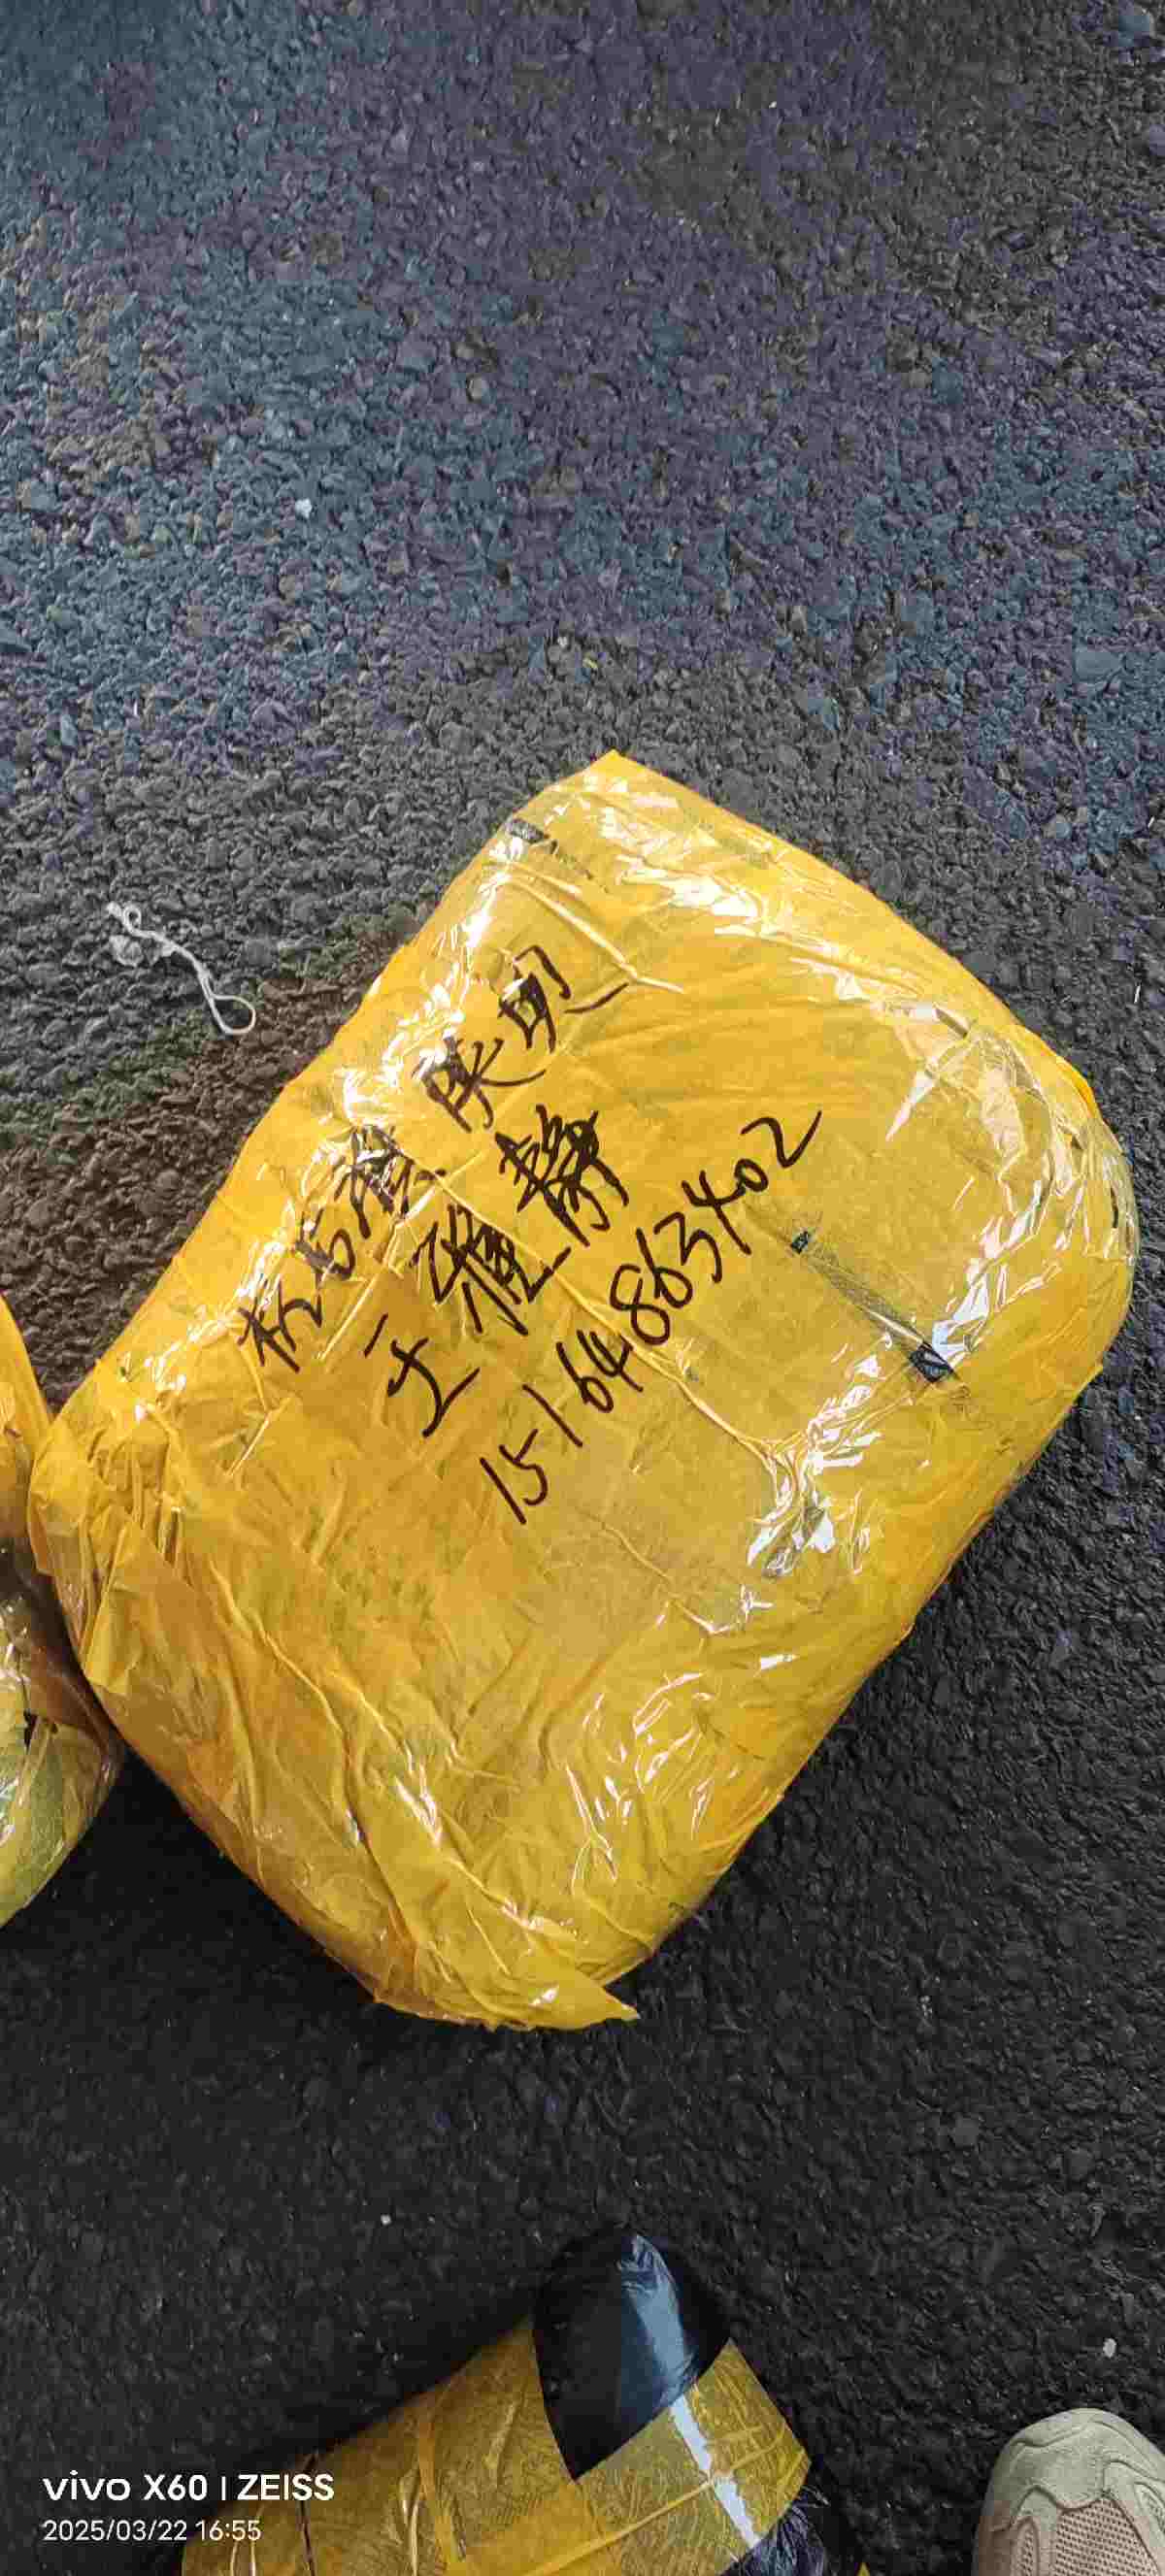 王雅静
15164863402
vivo X60 | ZEISS
2025/03/22 16:55